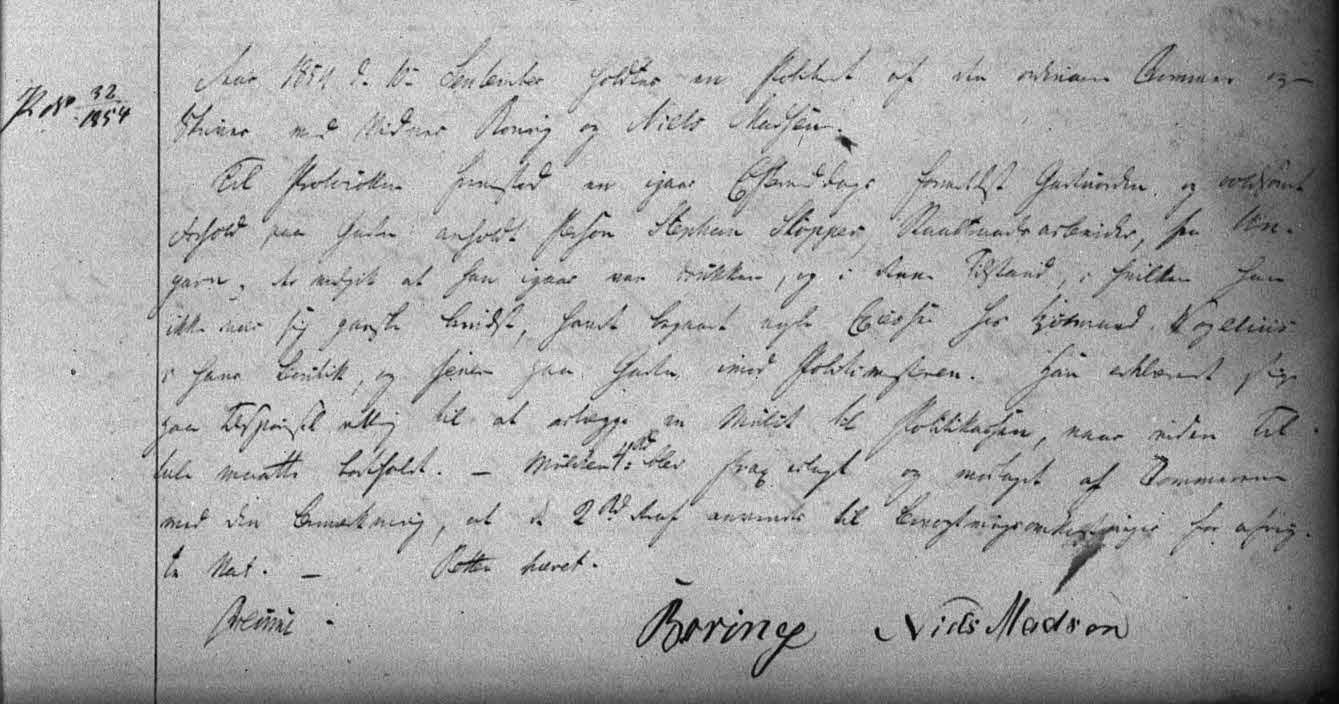 P. No. 32/1854
Aar 1854 d. 10 September holdtes en Politiret af den ordinære Dommer og
Skriver med Vidner Boring og Niels Madsen.
Til Protocollen fremstod en igaar Eftermiddags formedelst Gadeuorden og voldsomt
Forhold paa Gaden anholdt Person Stephan Skopper, arbeider, fra Un-
garn, der at han igaar var drukken, og i denne Tilstand, i hvilken han
ikke var sig ganske bevidst, havde begaaet nogle Excesser hos Kjøbmand
i hans Boutik, og senere paa Gaden imod Politimesteren. Han erklærede sig
paa Tilspørgsel villig til at erlægge en Mulct til Politikassen, naar viden Til
tale maatte bortfalde. — Mulcten 4 Rd blev strax erlagt og modtaget af Dommeren
med den Bemærkning, at de 2 Rd deraf anvendes til Bevogtningsomkostninger for afvig-
te Nat. — Retten hævet.
Boring Niels Madsen